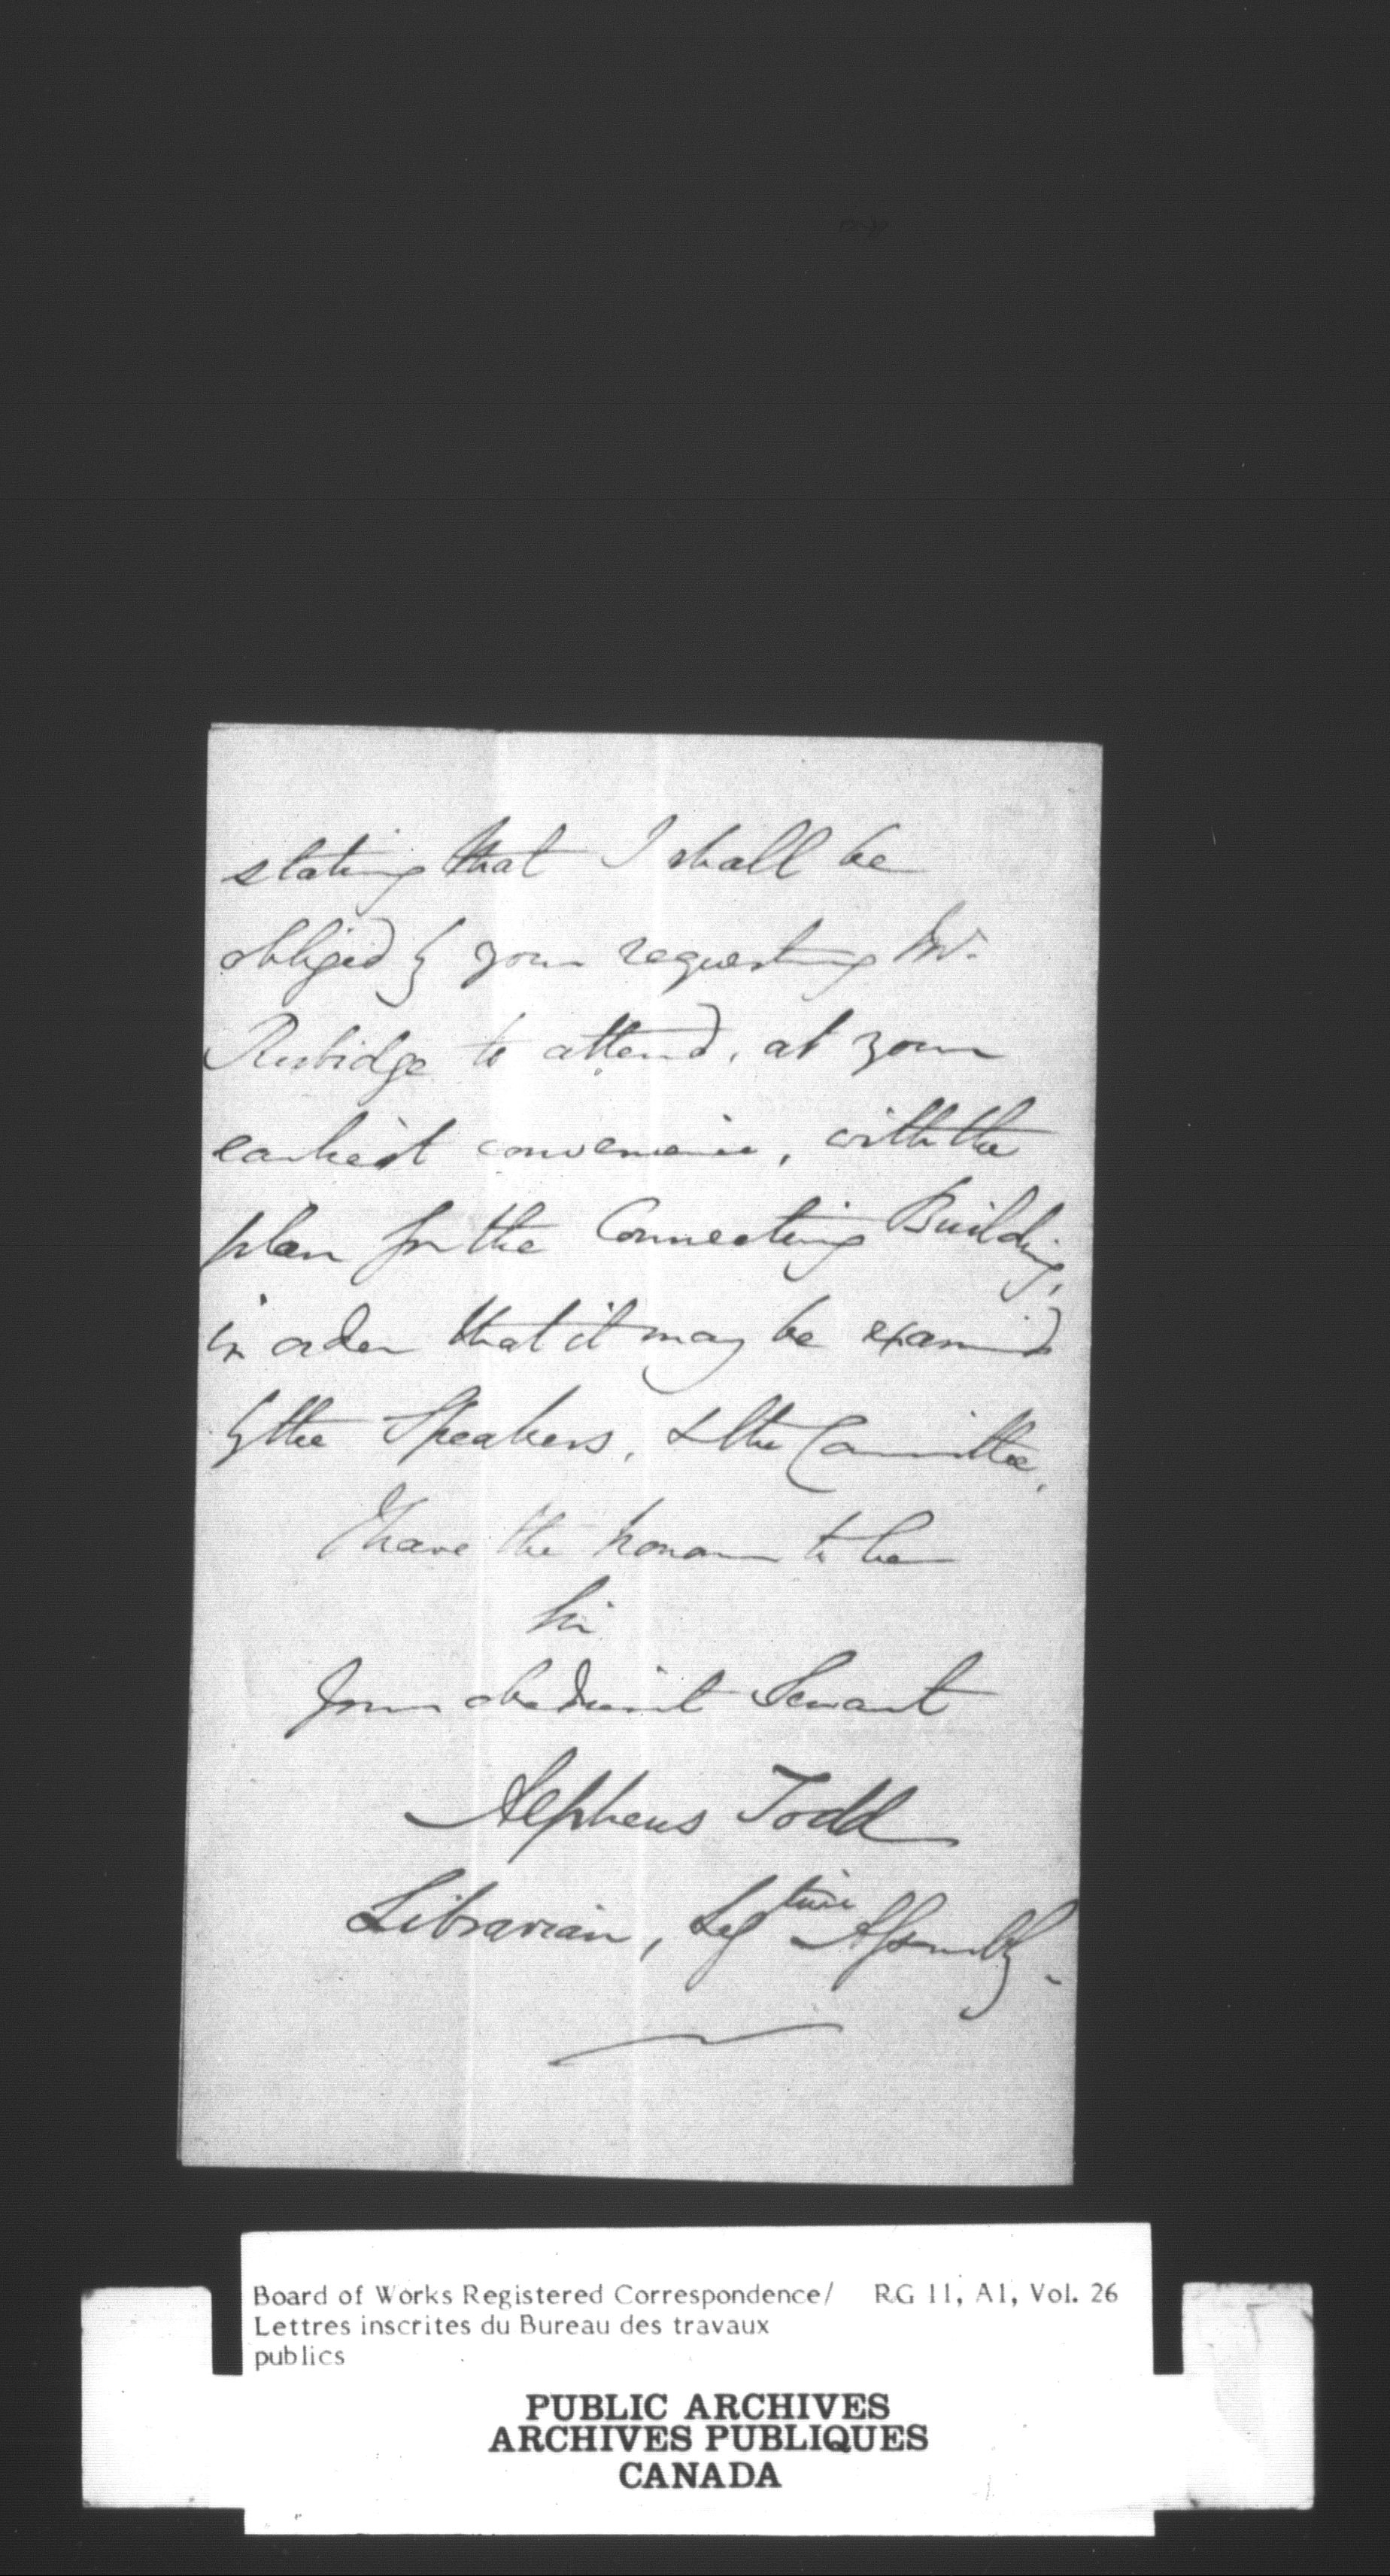 stating that I shall be
obliged by your requesting Mr.
Rubidge to attend, at your
earliest convenience, with the
plan for the Connecting Building,
in order that it may be examined
by the Speakers, & the Committee.
I have the honour to be
Sir
Your obedient Servant
Alpheus Todd
Librarian, Legtive Assembly.
Board of Works Registered Correspondence/ RG 11, A1, Vol. 26
Lettres inscrites du Bureau des travaux
publics
PUBLIC ARCHIVES
ARCHIVES PUBLIQUES
CANADA